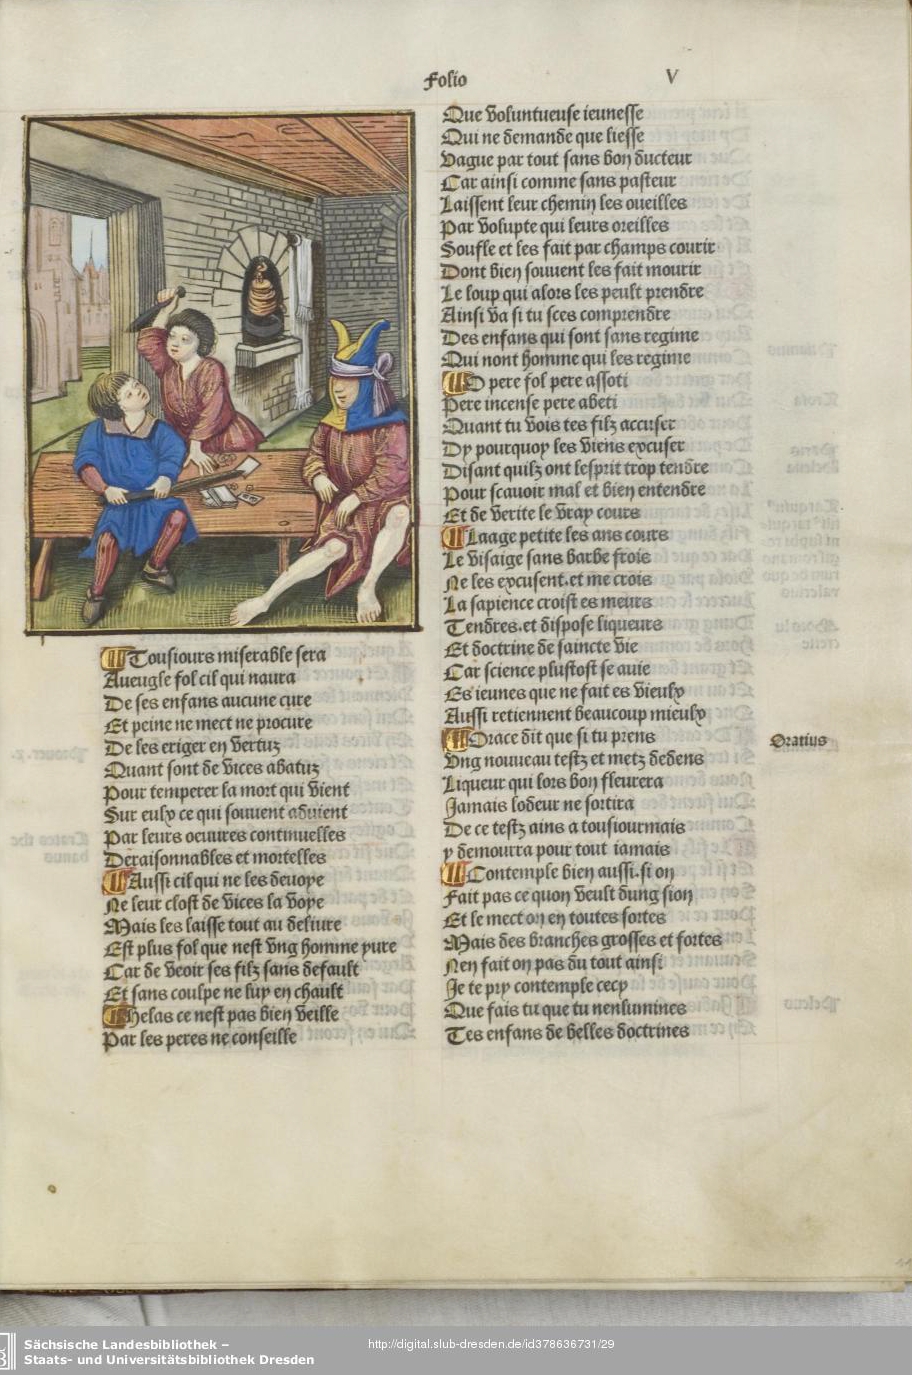 Folio V
Tousiours miserable sera
Aueugle fol cil qui naura
De ses enfans aucune cure
Et peine ne mect ne procure
De les eriger en vertuz
Quant sont de vices abatuz
Pour temperer la mort qui vient
Sur eulx ce qui souuent aduient
Par leurs oeuures continuelles
Deraisonnables et mortelles
Aussi cil qui ne les deuoye
Ne leur clost de vices la voye
Mais les laisse tout au deliure
Est plus fol que nest vng homme yure
Car de veoir ses filz sans default
Et sans coulpe ne luy en chault
Helas ce nest pas bien veille
Par les peres ne conseille
Que voluntueuse ieunesse
Qui ne demande que liesse
Vague par tout sans bon ducteur
Car ainsi comme sans pasteur
Laissent leur chemin les oueilles
Par volupte qui leurs oreilles
Soufle et les fait par champs courir
Dont bien souuent les fait mourir
Le loup qui alors les peult prendre
Ainsi va si tu sces comprendre
Des enfans qui sont sans regime
Qui nont homme qui les regime
O pere fol pere assoti
Pere incense pere abeti
Quant tu vois tes filz accuser
Dy pourquoy les viens excuser
Disant quilz ont lesprit trop tendre
Pour scauoir mal et bien entendre
Et de verite le vray cours
Laage petite les ans cours
Le visaige sans barbe frois
Ne les excusent.et me crois
La sapience croist es meurs
Tendres.et dispose liqueurs
Et doctrine de saincte vie
Car science plustost se auie
Es ieunes que ne fait es vieulx
Aussi retiennent beaucoup mieulx
Orace dit que si tu prens
Oratius
Vng nouueau testz et metz dedens
Liqueur qui lors bon fleurera
Jamais lodeur ne sortira
De ce testz ains a tousiourmais
y demourra pour tout iamais
Contemple bien aussi.si on
Fait pas ce quon veult dung sion
Et le mect on en toutes sortes
Mais des branches grosses et fortes
Nen fait on pas du tout ainsi
Je te pry contemple cecy
Que fais tu que tu nenlumines
Tes enfans de belles doctrines
Sächsische Landesbibliothek –
Staats- und Universitätsbibliothek Dresden
http://digital.slub-dresden.de/id378636731/29